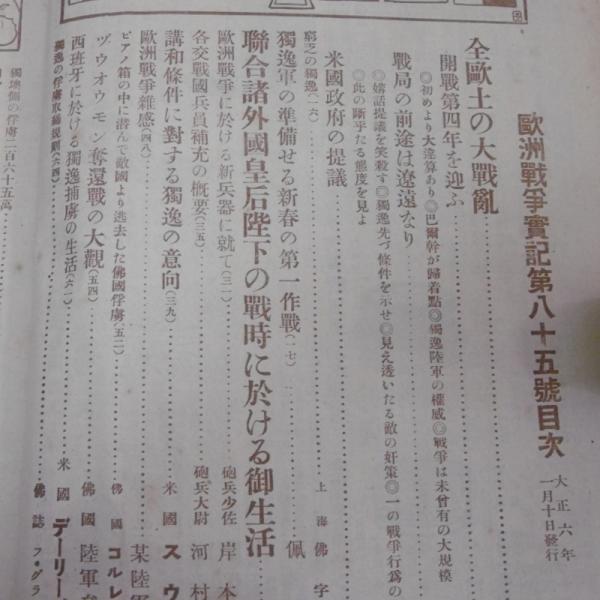 歐洲戰爭實記第八十五號目次
大正六年
一月十日發行
全歐土の大戰亂
開戰第四年を迎ふ
◎初めより大違算あり◎巴爾幹が歸着點◎獨逸陸軍の權威◎戰爭は未曾有の大規模
戰局の前途は遼遠なり
◎媾話提議を笑殺す◎獨逸先づ條件を示せ◎見え透いたる敵の奸策◎一の戰爭行爲の
◎此の斷乎たる態度を見よ
米國政府の提議
窮乏の獨逸(一六) 上海佛字
獨逸軍の準備せる新春の第一作戰(一七) 佩
聯合諸外國皇后陛下の戰時に於ける御生活
歐洲戰爭に於ける新兵器に就て(三一) 砲兵少佐 岸本
各交戰國兵員補充の概要(三五) 砲兵大尉 河村
講和條件に對する獨逸の意向(三九) 米國 スウ
歐洲戰爭雜感(四八) 某陸軍
ピアノ箱の中に潜んで敵國より逃去した佛國俘虜(五二) 佛國 コルレ
ヅウオウモン奪還戰の大觀(五四) 佛國 陸軍
西班牙に於ける獨逸捕虜の生活(六一) 米國 デーリー
獨逸の俘虜取締規則(六四) 佛誌 フ・グラ
獨墺側の俘虜二百六十五萬